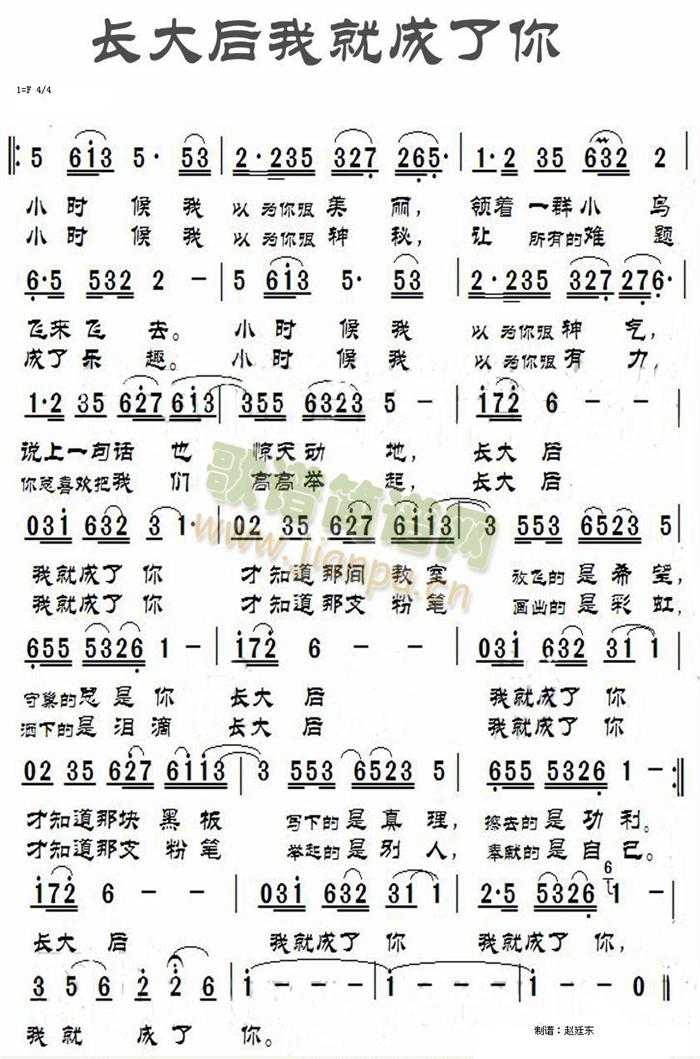 长大后我就成了你
1=F 4/4
5 613 5· 53 | 2·235 327 265· | 1·2 35 632 2
小时候我 以为你很美丽, 领着一群小鸟
小时候我 以为你很神秘, 让所有的难题
6·5 532 2 - | 5 613 5· 53 | 2·235 327 276·
飞来飞去。 小时候我 以为你很神气,
成了乐趣。 小时候我 以为你很有力,
1·2 35 627 613 | 355 6323 5 - | 172 6 - -
说上一句话也 惊天动地, 长大后
你总喜欢把我们 高高举起, 长大后
031 632 3 1· | 02 35 627 6113 | 3 553 6523 5
我就成了你 才知道那间教室 放飞的是希望,
我就成了你 才知道那支粉笔 画出的是彩虹,
655 5326 1 - | 172 6 - - | 031 632 31 1
守巢的总是你 长大后 我就成了你
洒下的是泪滴 长大后 我就成了你
02 35 627 6113 | 3 553 6523 5 | 655 5326 1 -
才知道那块黑板 写下的是真理, 擦去的是功利。
才知道那支粉笔 举起的是别人, 奉献的是自己。
172 6 - - | 031 632 31 1 | 2·5 5326 6 1 -
长大后 我就成了你 我就成了你,
3 5 6 2 2 6 | 1 - - - | 1 - 1 - - | 1 - - 0
我就成了你。
制谱:赵廷东
歌谱简谱网
www.jianpu.cn